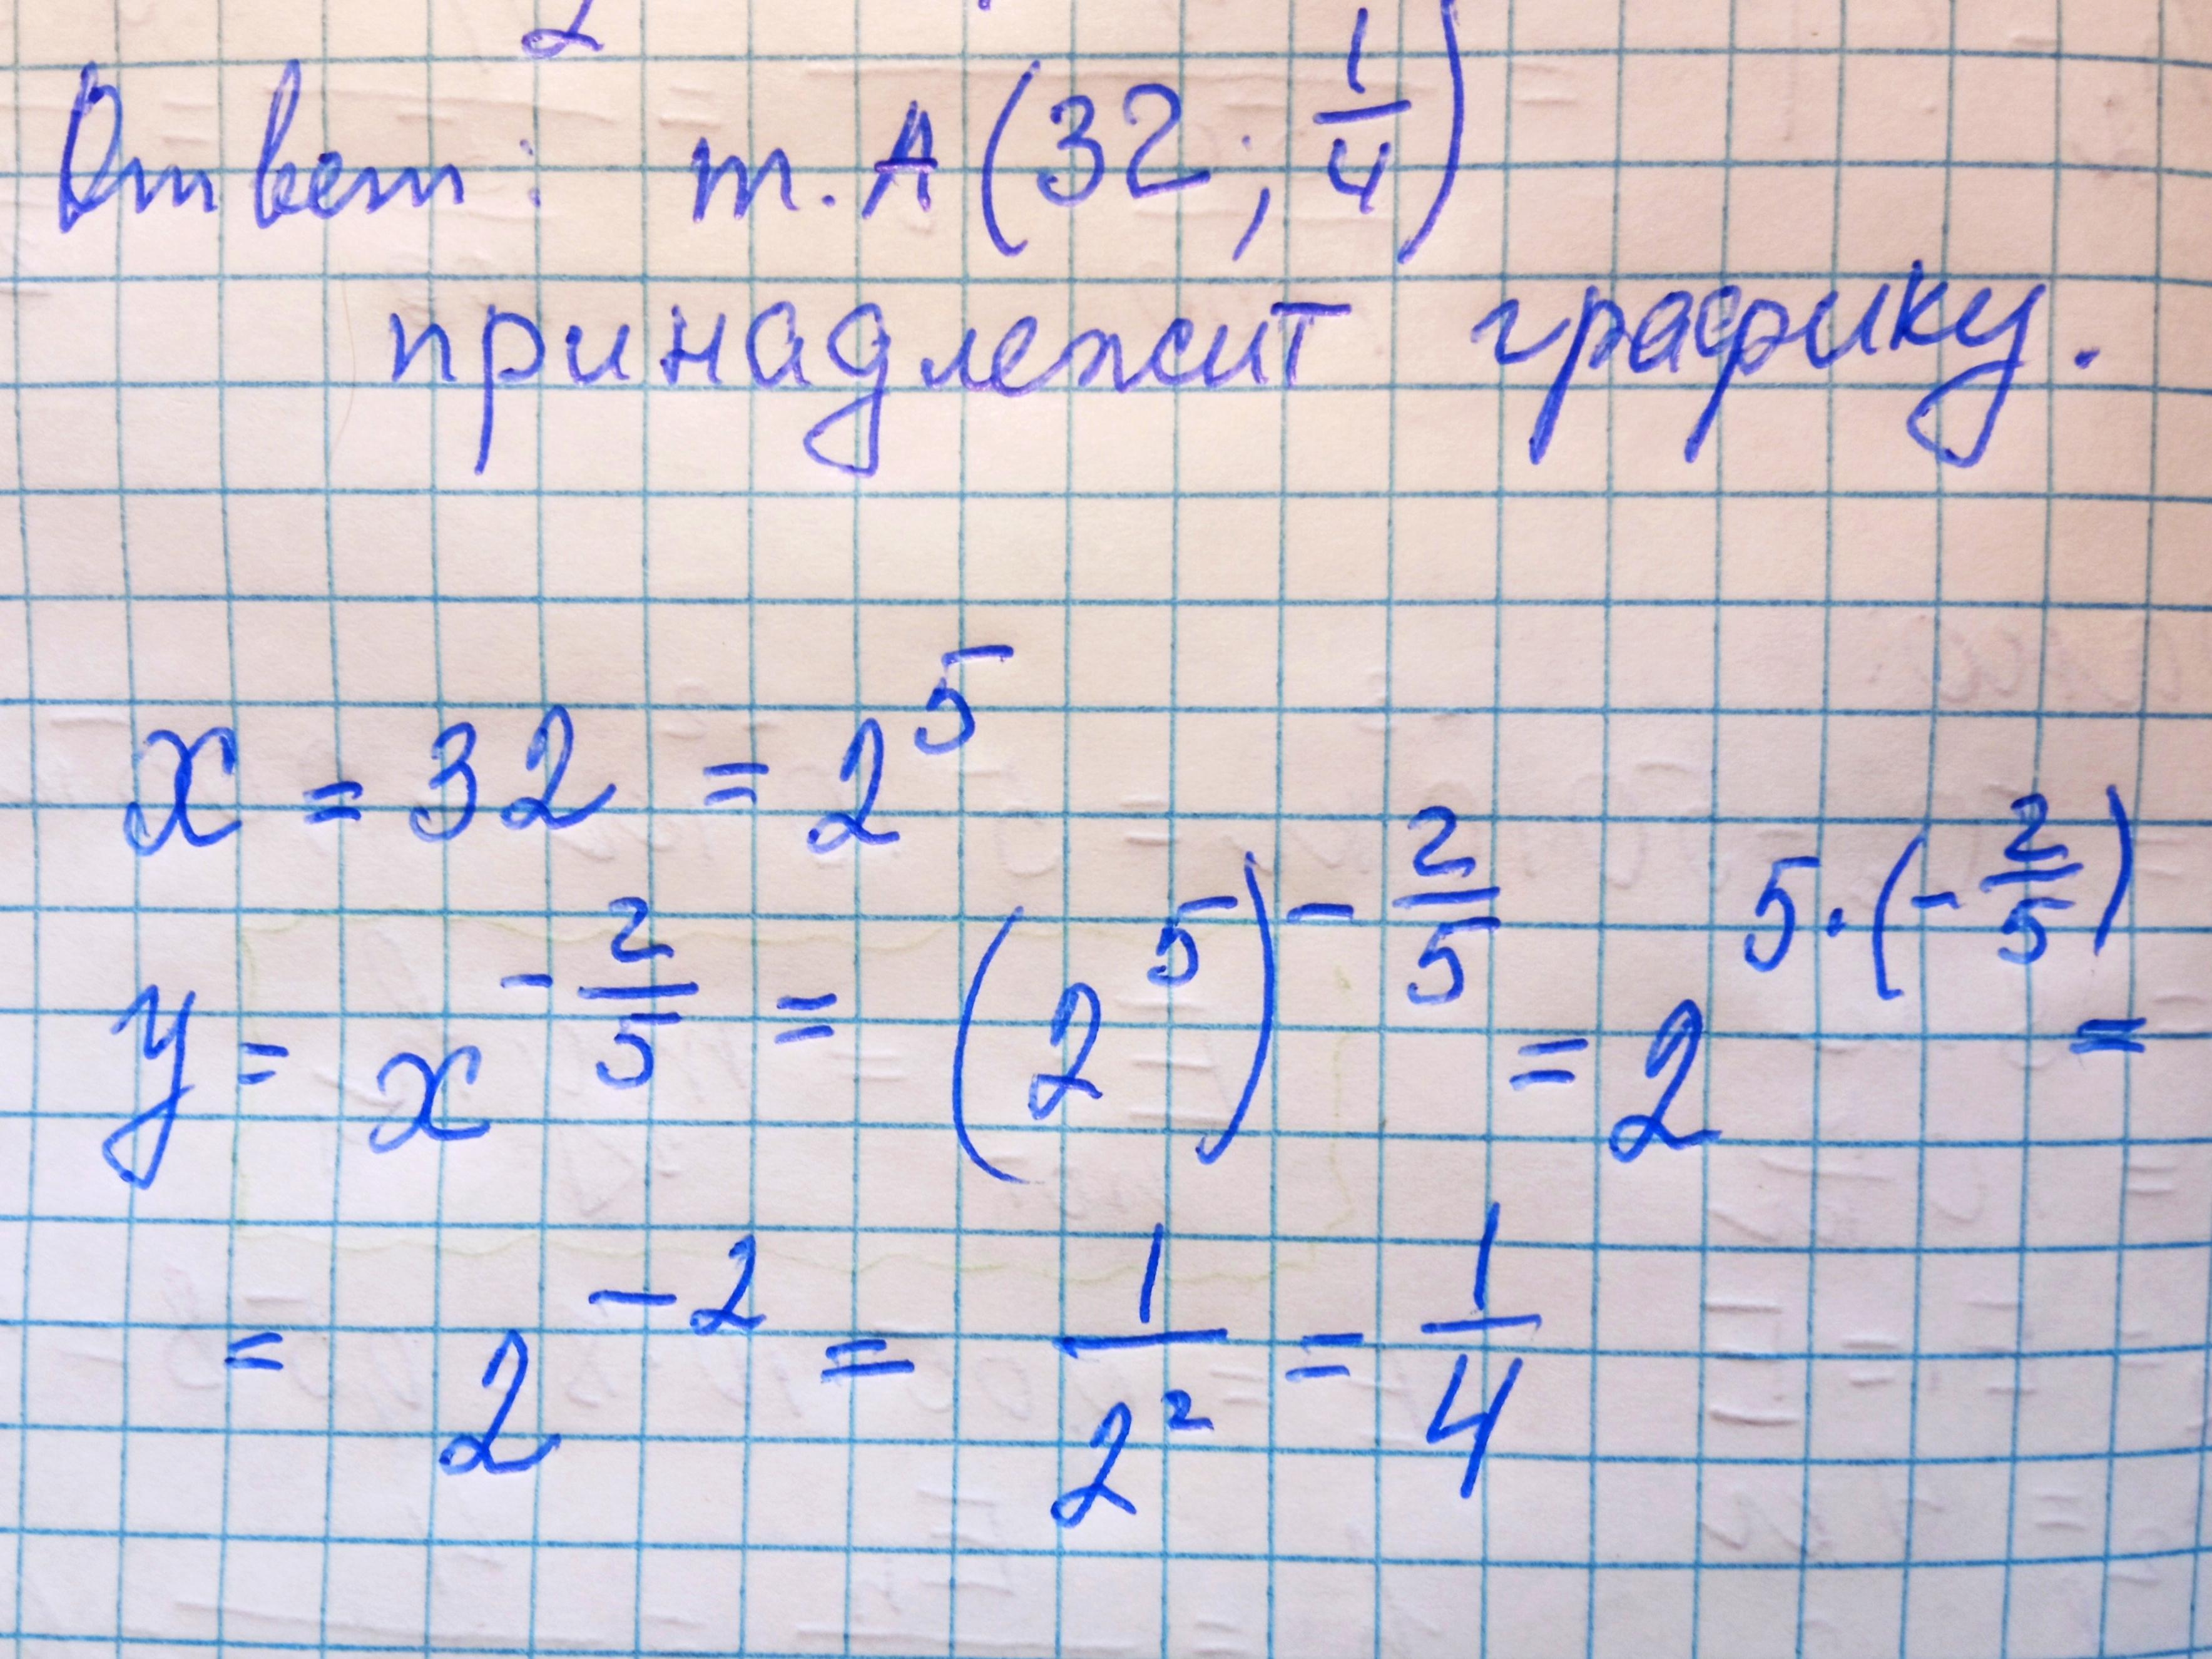 2
Ответ: т. А(32; 1/4)
принадлежит графику.
x = 32 = 2^5
y = x^(-2/5) = (2^5)^(-2/5) = 2^(5·(-2/5)) =
= 2^(-2) = 1/2^2 = 1/4